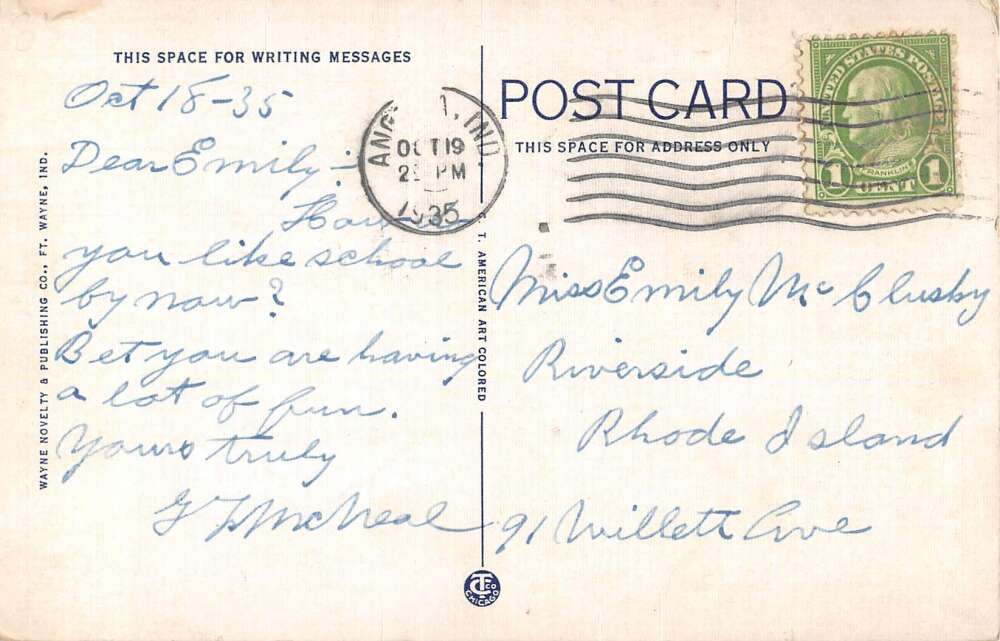 THIS SPACE FOR WRITING MESSAGES
Oct 18-35
Dear Emily:-
How do
you like school
by now?
Bet you are having
a lot of fun.
Yours truly
McNeal
WAYNE NOVELTY & PUBLISHING CO., FT. WAYNE, IND.
C. T. AMERICAN ART COLORED
CHICAGO
POST CARD
THIS SPACE FOR ADDRESS ONLY
IND.
OCT 19
PM
1935
UNITED STATES POSTAGE
FRANKLIN
1 CENT 1
Miss Emily McClusky
Riverside
Rhode Island
91 Willett Ave